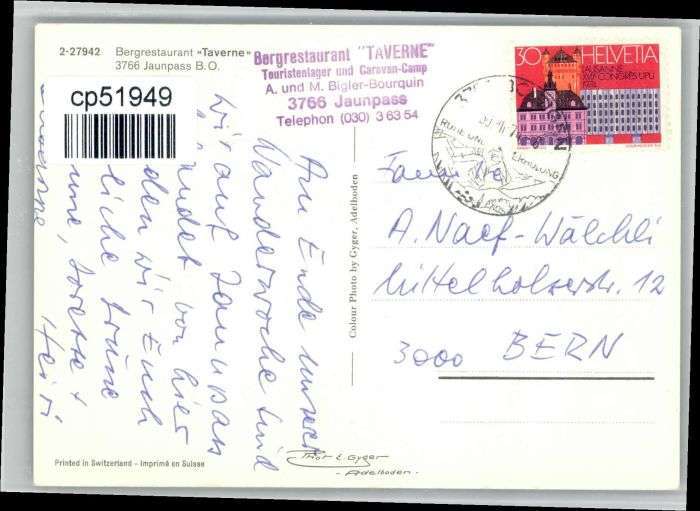 2-27942 Bergrestaurant "Taverne"
3766 Jaunpass B.O.
Bergrestaurant "TAVERNE"
Touristenlager und Caravan-Camp
A. und M. Bigler-Bourquin
3766 Jaunpass
Telephon (030) 3 63 54
cp51949
30 HELVETIA
LAUSANNE
XVIIe CONGRÈS UPU
1974
RUHE UND ERHOLUNG
Am Ende unserer
Wanderwoche sind
wir auf Jaunpass
von hier
den wir Euch
liche Grüsse
Heidi
Colour Photo by Gyger, Adelboden
Familie
A. Naef-Wälchli
Mittelholzerstr. 12
3000 BERN
Printed in Switzerland - Imprimé en Suisse
Phot E. Gyger
- Adelboden -